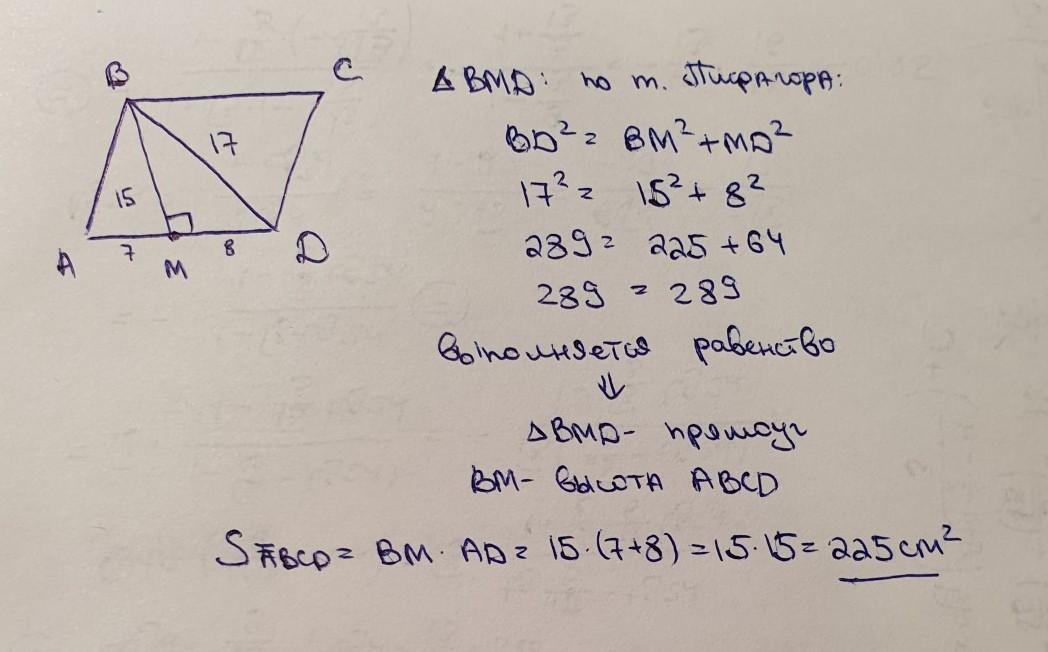 B C
17
15
A 7 M 8 D
Δ BMD: по т. Пифагора:
BD² = BM² + MD²
17² = 15² + 8²
289 = 225 + 64
289 = 289
выполняется равенство
⇓
Δ BMD - прямоуг
BM - высота ABCD
S ABCD = BM · AD = 15 · (7+8) = 15 · 15 = 225 см²